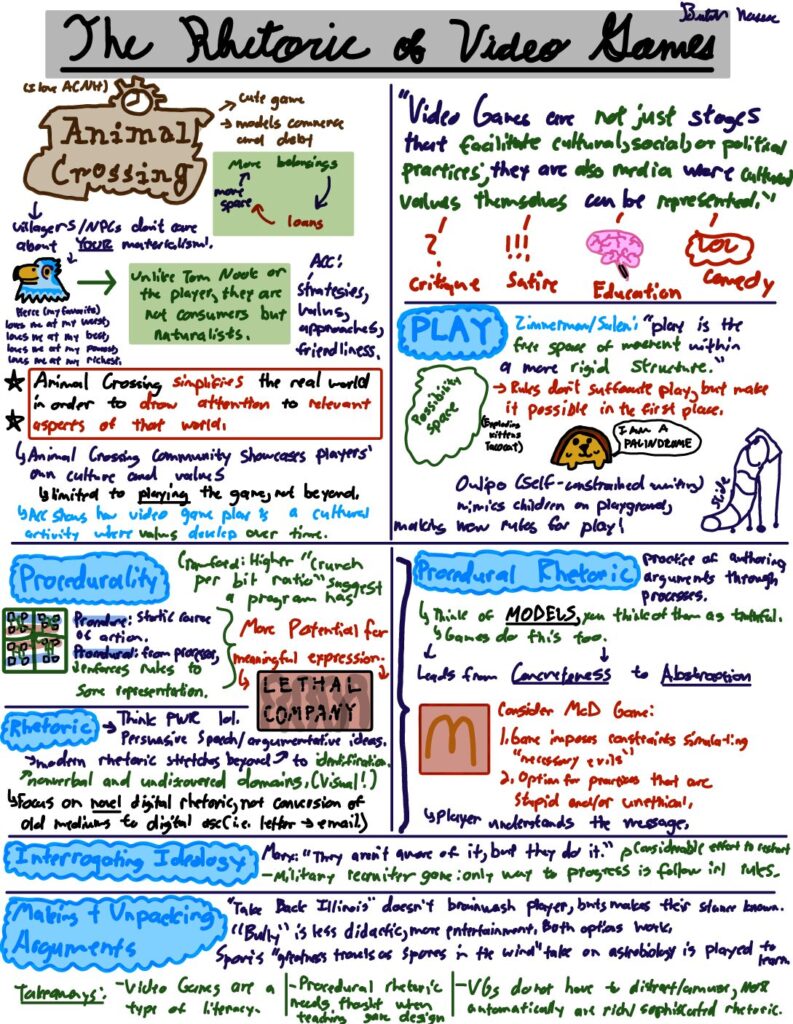 The Rhetoric of Video Games
(I love ACNH)
Animal
Crossing
→ cute game
→ models commerce
and debt
More belongings
more
space
loans
villagers/NPCs don't care
about YOUR materialism!
Unlike Tom Nook or
the player, they are
not consumers but
naturalists.
ACC:
strategies,
values,
approaches,
friendliness.
(my favorite)
loves me at my worst,
loves me at my best,
loves me at my poorest,
loves me at my richest.
Animal Crossing simplifies the real world
in order to draw attention to relevant
aspects of that world.
Animal Crossing Community showcases players'
own culture and values
limited to playing the game, not beyond.
ACC shows how video game play is a cultural
activity where values develop over time.
"Video Games are not just stages
that facilitate cultural, social, or political
practices; they are also media were cultural
values themselves can be represented."
?
Critique
!!!
Satire
Education
LOL
Comedy
PLAY
Zimmerman/Salen: "play is the
free space of movement within
a more rigid structure."
→ Rules don't suffocate play, but make
it possible in the first place.
Possibility
space
(Exploding
Kittens
Tacocat)
I AM A
PALINDROME
Oulipo (self-constrained writing)
mimics children on playground,
making new rules for play!
slide
Procedurality
Crawford: Higher "Crunch
per bit ratio" suggest
a program has
More Potential for
meaningful expression.
Procedure: Static course
of action.
Procedural: from processor,
enforces rules to
some representation.
LETHAL
COMPANY
Rhetoric
→ Think PWR lol.
Persuasive Speech/argumentative ideas.
→ modern rhetoric stretches beyond to identification.
nonverbal and undiscovered domains. (Visual!)
Focus on novel digital rhetoric, not conversion of
old mediums to digital (i.e. letter → email)
Procedural Rhetoric
practice of authoring
arguments through
processes.
Think of MODELS, you think of them as truthful.
Games do this too.
Leads from Concreteness to Abstraction
Consider McD Game:
1. Game imposes constraints simulating
"necessary evils"
2. Option for practices that are
stupid and/or unethical.
player understands the message.
Interrogating Ideology
Marx: "They aren't aware of it, but they do it."
Considerable effort to restart
- Military recruiter game: only way to progress is follow irl rules.
Making + Unpacking
Arguments
"Take Back Illinois" doesn't brainwash player, but makes their stance known.
"Bully" is less didactic, more entertainment. Both options work.
Spore's "greatness travels as spores in the wind" take on astrobiology is played to
learn.
Takeaways:
- Video Games are a
type of literacy.
- Procedural rhetoric
needs thought when
teaching game design
- VGs do not have to distract/amuse, nor
automatically are rich/sophisticated rhetoric.